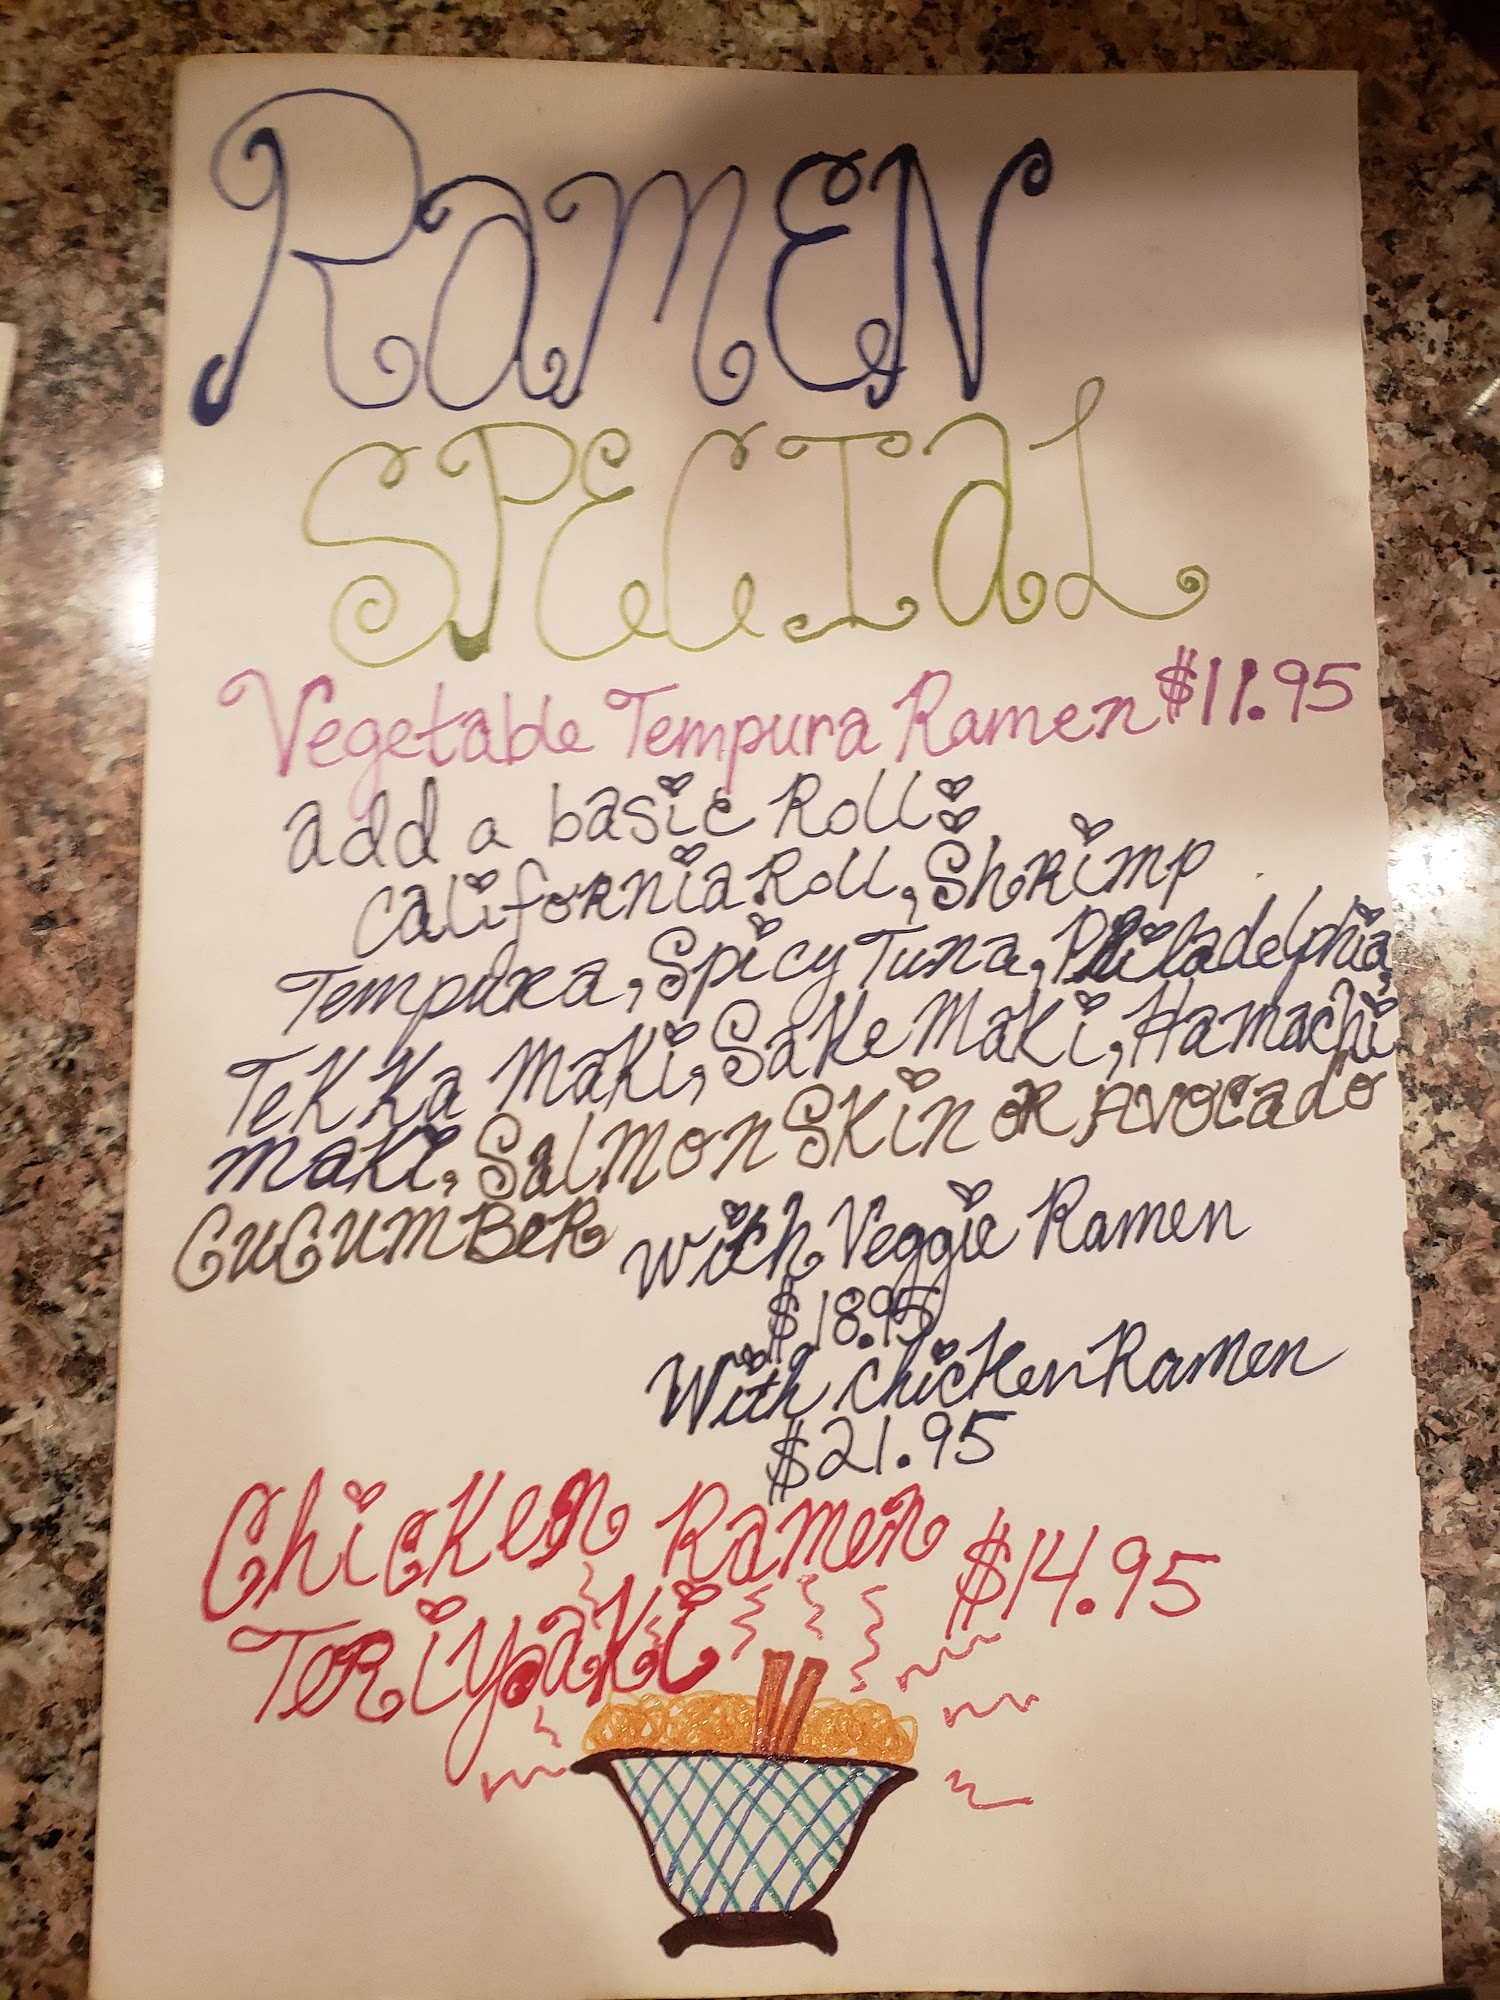 RAMEN
SPECIAL
Vegetable Tempura Ramen $11.95
add a basic Roll:
California Roll, Shrimp
Tempura, Spicy Tuna, Philadelphia,
Tekka Maki, Sake Maki, Hamachi
Maki, Salmon Skin or Avocado
Cucumber
With Veggie Ramen
$18.95
With Chicken Ramen
$21.95
Chicken Ramen $14.95
Teriyaki